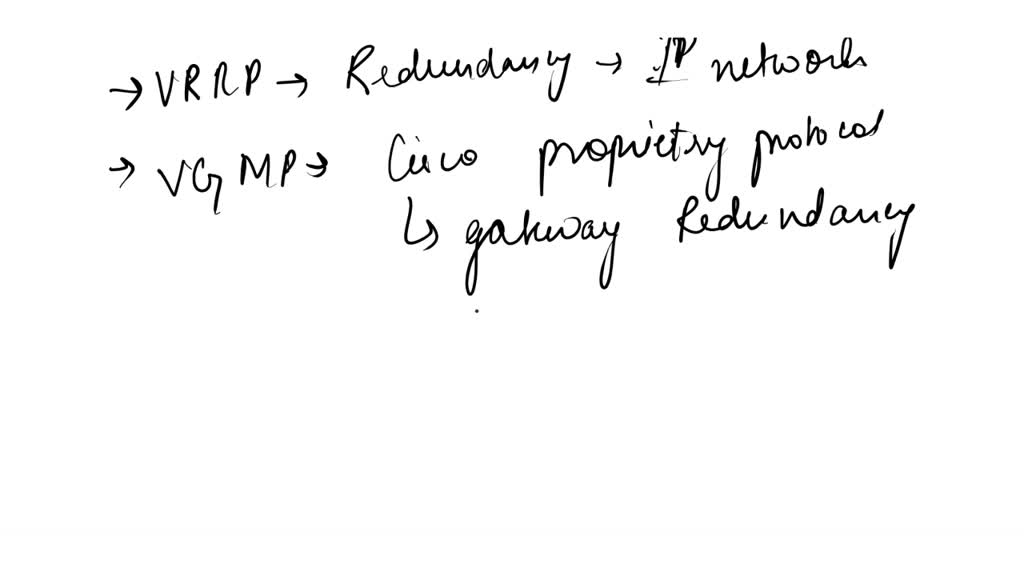 → VRRP → Redundancy → IP network
→ VGMP → Cisco proprietry protocol
↳ gateway Redundancy